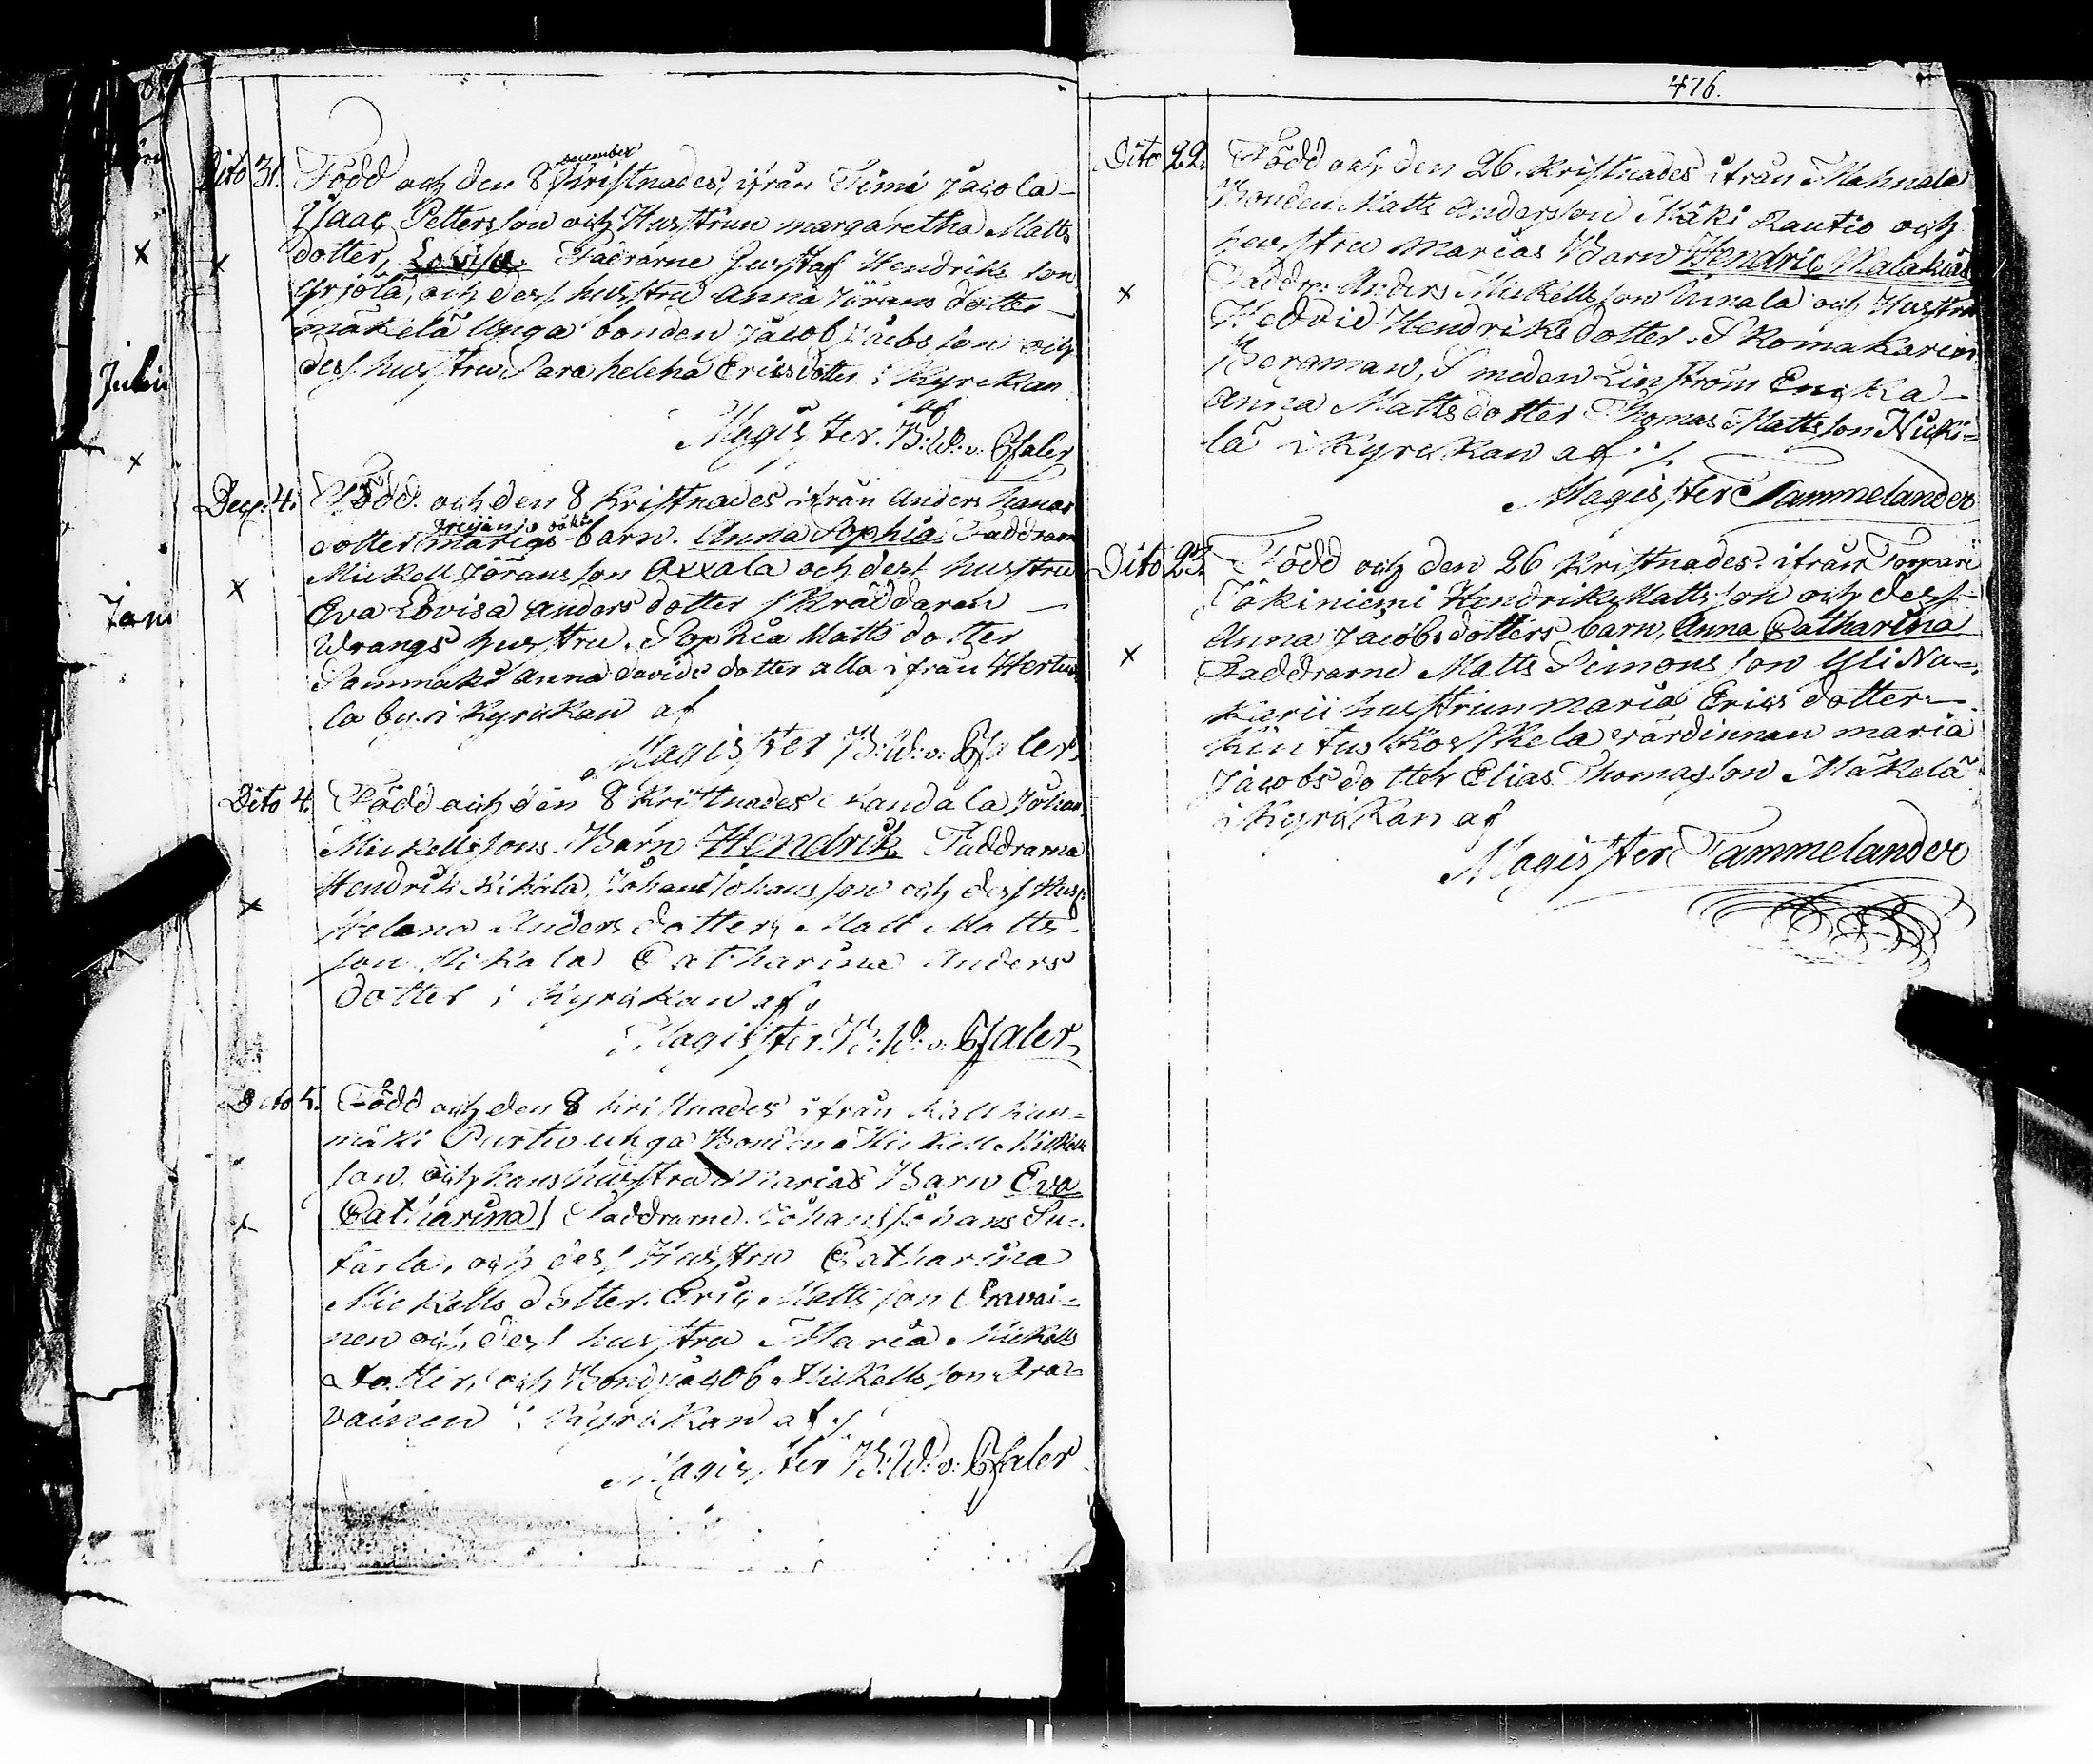 Dito 31. Född och den 8 december Kristnades, ifrån Timi Jacola
Isaac Pettersson och Hustrun margaretha Matts
dotter, Lovisa. Fadrarne Gustaf Hendriks son
Yrjölä, och dess hustru Anna Jörans dotter
mäkelä Unga bonden Jacob Jacobs son och
dess hustru, Sara helena Ericsdotter i Kyrckan
af
Magister. B:W: v: Pfaler
Dec: 4. Född och den 8 Kristnades ifrån Anders
dotter marias barn. Anna Sophia Faddrarne
Mickell Jörans son Axxala och dess hustru
Eva Lovisa Anders dotter Skräddaren
Wrangs hustru. Sophia Matts dotter
Sammaki Anna Davids dotter alla ifrån
la by. i Kyrckan af
Magister B:W: v: Pfaler
Dito 4. Född och den 8 Kristnades Johan
Mickellssons Barn Hendrik Faddrarna
Hendrik Kikala, Johan Johansson och dess Hust:
Helena Anders dotter, Matt Matts
son Kikala Catharina Anders
dotter i Kyrckan af
Magister. B:W: v: Pfaler
Dito 5. Född och den 8 Kristnades ifrån
mäki Purtu unga Bonden Mickell Mickell
son. och hans hustru Marias Barn Eva
Catharina Faddrarne. Johan Johans Su-
tarla, och dess Hustru Catharina
Mickells dotter. Eric Matts son Pravai-
nen och dess hustru Maria Mickells
dotter, och Bond Jacob Mickells son Prav-
vainen i Kyrckan af
Magister B:W: v: Pfaler
Julii
Jan
476.
Dito 22. Född och den 26. Kristnades ifrån Mahnala
Bonden Matts Andersson Mäki Rautio och
hustru Marias Barn Hendric Malakias
Faddr: Anders Mickellsson och Hustru
Hedvid Hendriks dotter. Skomakaren
Bergman, Smeden Linström Enckan
Anna Matts dotter Thomas Mattsson
lä i Kyrckan af
Magister Tammelander
Dito 23. Född och den 26 Kristnades. ifrån Torpari
Jokiniemi Hendrik Matts son och dess
Anna Jacobs dotters barn, Anna Catharina
Faddrarne Matts Simons son Yli Nu-
karii hustrun maria Erics dotter
Kintus Koskela värdinnan maria
Jacobs dotter Elias Thomasson Mäkelä
i Kyrckan af
Magister Tammelander